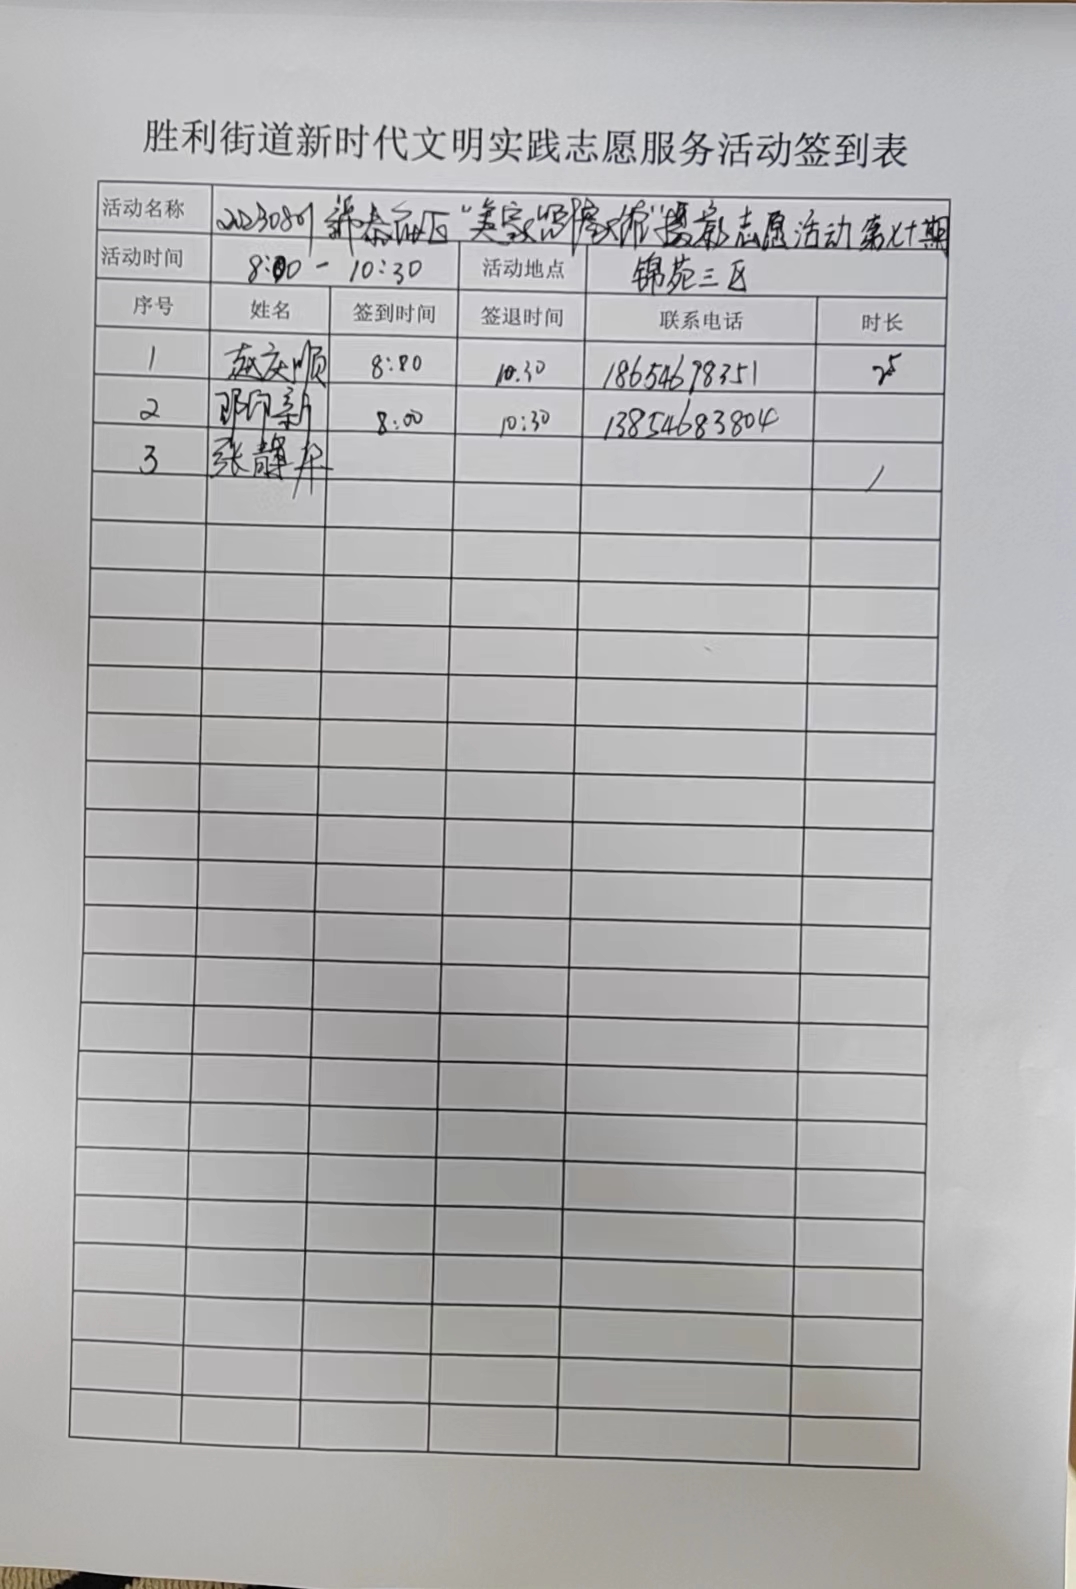 胜利街道新时代文明实践志愿服务活动签到表
活动名称 20230801 锦泰社区"美家 "摄影志愿活动第七十期
活动时间 8:00 - 10:30 活动地点 锦苑三区
序号 姓名 签到时间 签退时间 联系电话 时长
1 赵庆顺 8:00 10.30 18654698351 25
2 邵印新 8:00 10:30 13854683804
3 张静